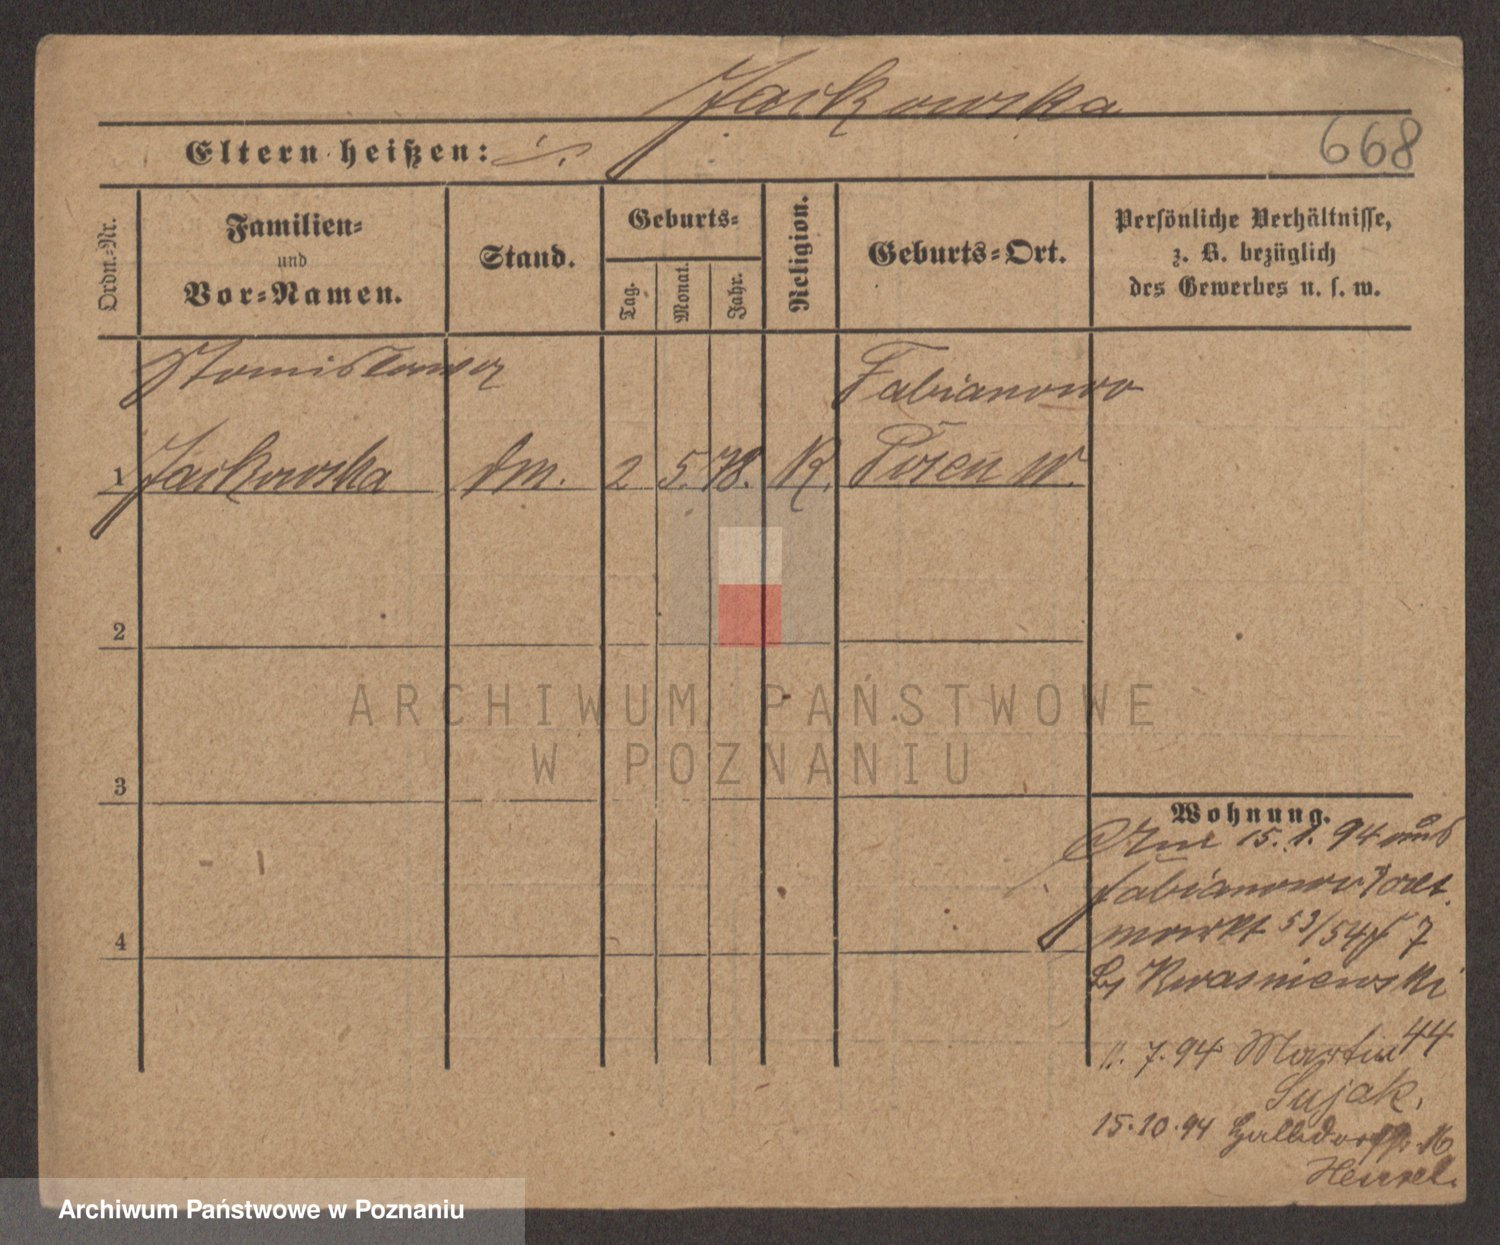 Jackowska
Eltern heißen: ./.
668
Ordn.-Nr.
Familien-
und
Vor-Namen.
Stand.
Geburts-
Tag.
Monat.
Jahr.
Religion.
Geburts-Ort.
Persönliche Verhältnisse,
z. B. bezüglich
des Gewerbes u. s. w.
Stanislawa
Fabianowo
1 Jackowska dm. 2 5. 78. K. Posen W.
2
ARCHIWUM PAŃSTWOWE
W POZNANIU
3
Wohnung.
15. 1. 94 aus
Fabianowo
markt 53/54 7
Kwasniewski
4
11. 7. 94 Martin 44
Sujak.
15.10.94 Halbdorffstr. 16
Archiwum Państwowe w Poznaniu